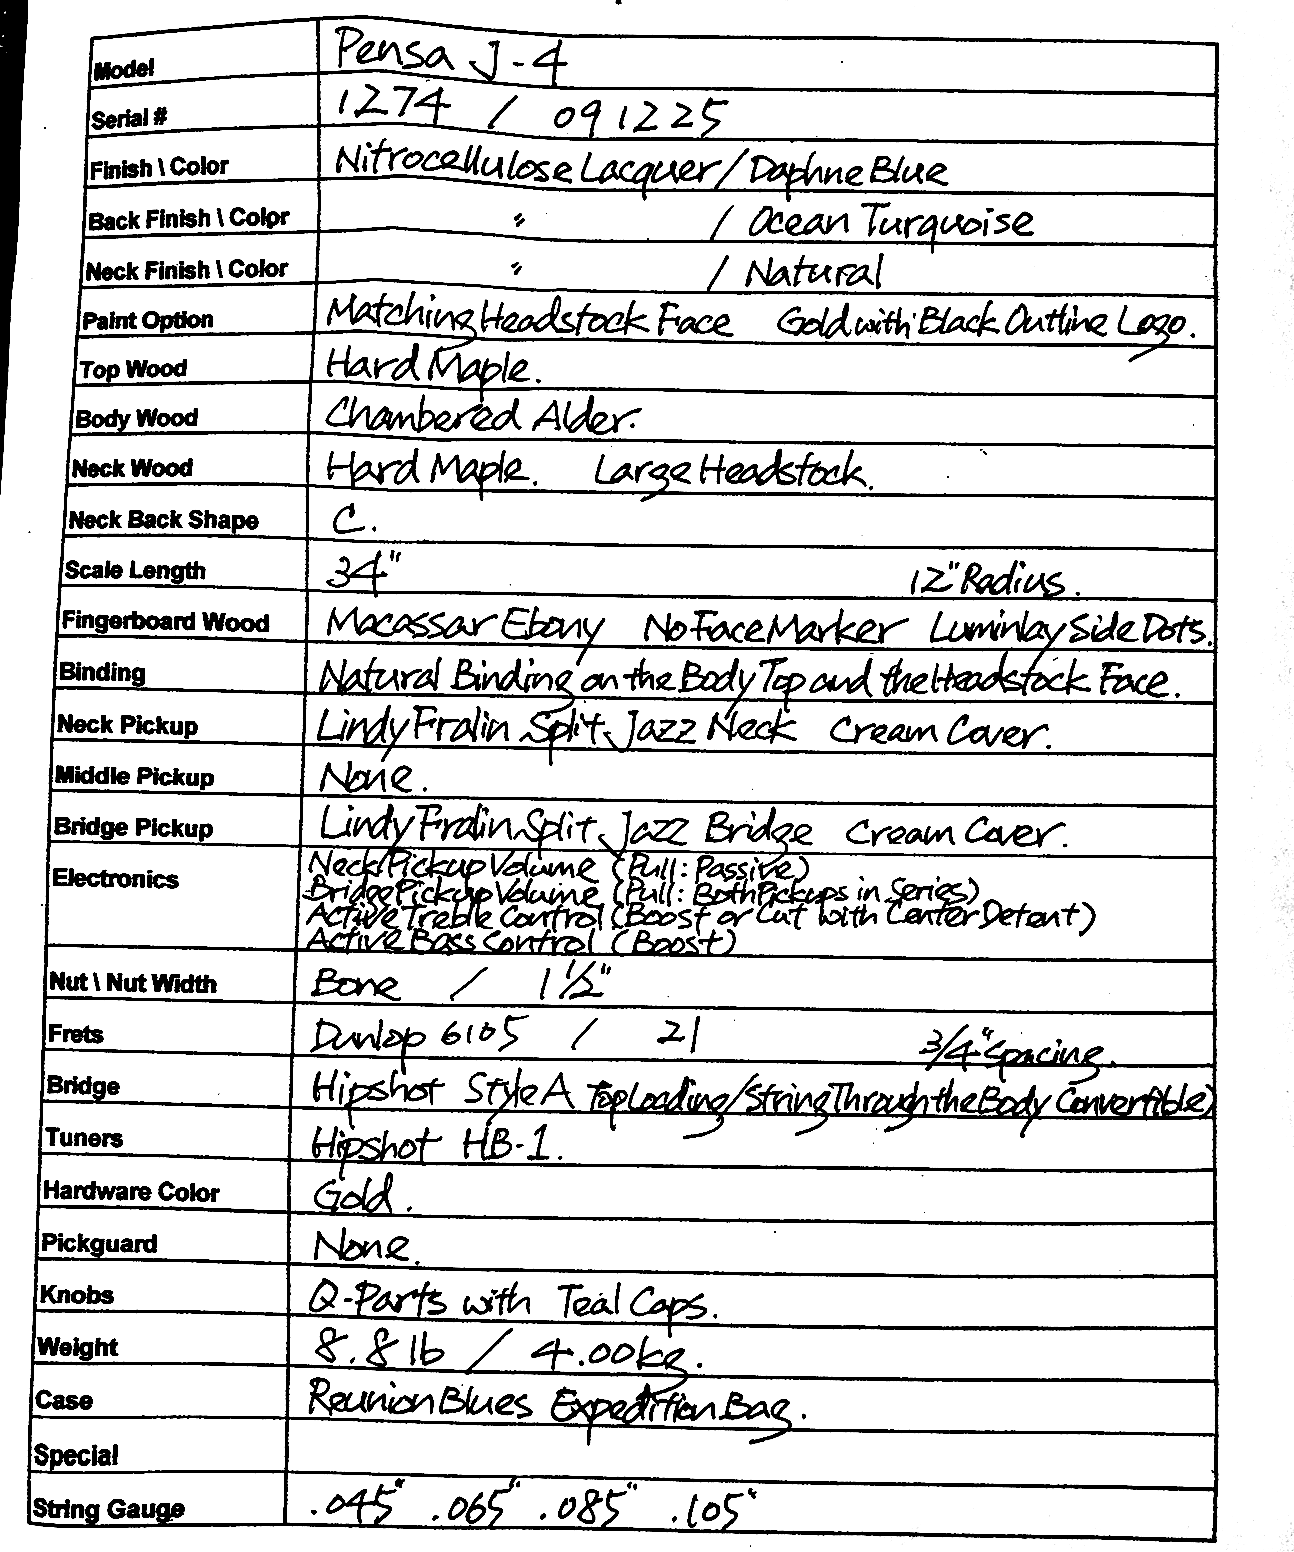 Model Pensa J-4
Serial # 1274 / 091225
Finish \ Color Nitrocellulose Lacquer / Daphne Blue
Back Finish \ Color " / Ocean Turquoise
Neck Finish \ Color " / Natural
Paint Option Matching Headstock Face Gold with Black Outline Logo.
Top Wood Hard Maple.
Body Wood Chambered Alder.
Neck Wood Hard Maple. Large Headstock.
Neck Back Shape C.
Scale Length 34" 12" Radius.
Fingerboard Wood Macassar Ebony No Face Marker Luminlay Side Dots.
Binding Natural Binding on the Body Top and the Headstock Face.
Neck Pickup Lindy Fralin Split Jazz Neck Cream Cover.
Middle Pickup None.
Bridge Pickup Lindy Fralin Split Jazz Bridge Cream Cover.
Electronics Neck Pickup Volume (Pull: Passive)
Bridge Pickup Volume (Pull: Both Pickups in Series)
Active Treble Control (Boost or Cut with Center Detent)
Active Bass Control (Boost)
Nut \ Nut Width Bone / 1 1/2"
Frets Dunlop 6105 / 21 3/4" Spacing.
Bridge Hipshot Style A Top Loading/String Through the Body Convertible)
Tuners Hipshot HB-1.
Hardware Color Gold.
Pickguard None.
Knobs Q-Parts with Teal Caps.
Weight 8.8 lb / 4.00kg.
Case Reunion Blues Expedition Bag.
Special
String Gauge .045" .065" .085" .105"